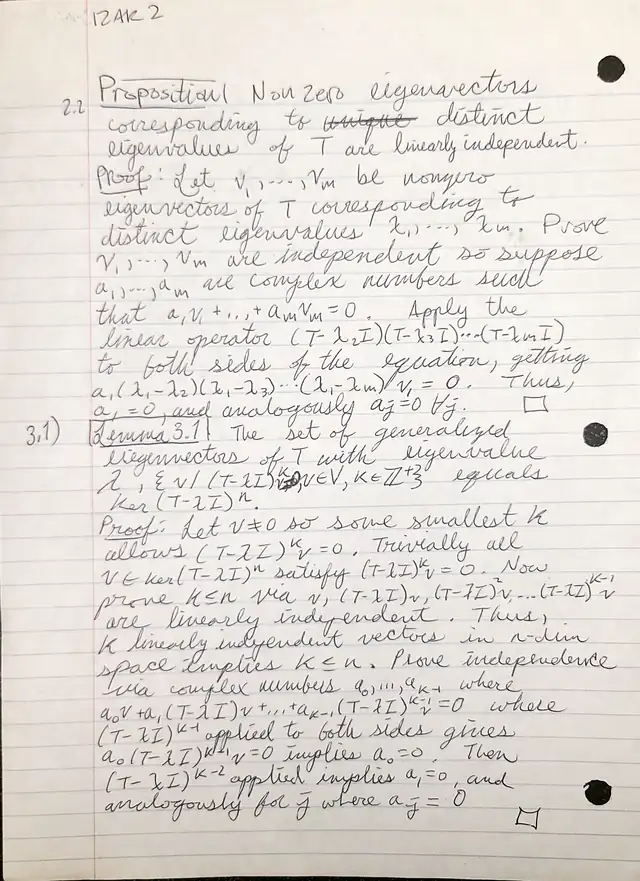 IZAK 2
2.2 Proposition Non zero eigenvectors
corresponding to unique distinct
eigenvalues of T are linearly independent.
Proof: Let v₁,...,vₘ be nonzero
eigenvectors of T corresponding to
distinct eigenvalues λ₁,..., λₘ. Prove
v₁,...,vₘ are independent so suppose
a₁,...,aₘ are complex numbers such
that a₁v₁+...+aₘvₘ=0. Apply the
linear operator (T-λ₂I)(T-λ₃I)...(T-λₘI)
to both sides of the equation, getting
a₁(λ₁-λ₂)(λ₁-λ₃)...(λ₁-λₘ)v₁=0. Thus,
a₁=0, and analogously aⱼ=0 ∀j. □
3.1) Lemma 3.1 The set of generalized
eigenvectors of T with eigenvalue
λ, {v|(T-λI)ᵏv=0,v∈V,k∈ℤ⁺} equals
ker(T-λI)ⁿ.
Proof: Let v≠0 so some smallest k
allows (T-λI)ᵏv=0. Trivially all
v∈ker(T-λI)ⁿ satisfy (T-λI)ᵏv=0. Now
prove k≤n via v,(T-λI)v,(T-λI)²v,...(T-λI)ᵏ⁻¹v
are linearly independent. Thus,
k linearly independent vectors in n-dim
space implies k≤n. Prove independence
via complex numbers a₀,...,aₖ₋₁ where
a₀v+a₁(T-λI)v+...+aₖ₋₁(T-λI)ᵏ⁻¹v=0 where
(T-λI)ᵏ⁻¹ applied to both sides gives
a₀(T-λI)ᵏ⁻¹v=0 implies a₀=0. Then
(T-λI)ᵏ⁻² applied implies a₁=0, and
analogously for j where aⱼ=0
□